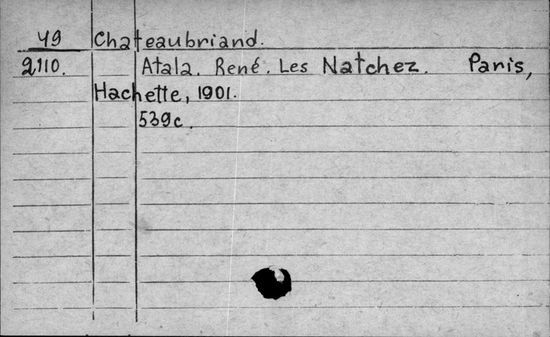 49 Chateaubriand.
2110. Atala. René. Les Natchez. Paris,
Hachette, 1901.
539c.